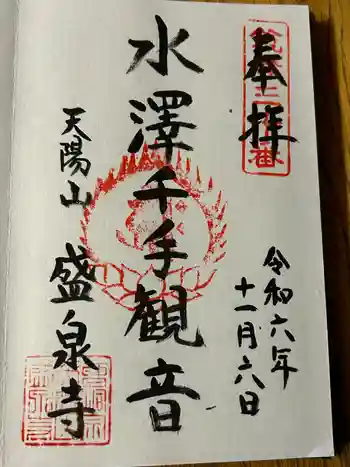 奉拝
令和六年
十一月六八日
水澤千手観音
天陽山
盛泉寺